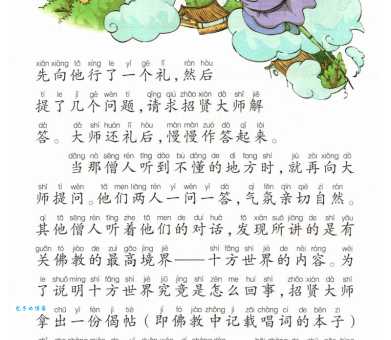 xiān xiàng tā xíng le yí gè lǐ rán hòu
先向他行了一个礼，然后
tí le jǐ gè wèn tí qǐng qiú zhāo xián dà shī jiě
提了几个问题，请求招贤大师解
dá dà shī huán lǐ hòu màn màn zuò dá qǐ lái
答。大师还礼后，慢慢作答起来。
dāng nà sēng rén tīng dào bù dǒng de dì fang shí jiù zài xiàng dà
当那僧人听到不懂的地方时，就再向大
shī tí wèn tā men liǎng rén yí wèn yì dá qì fēn qīn qiè zì rán
师提问。他们两人一问一答，气氛亲切自然。
qí tā sēng rén tīng zhe tā men de duì huà fā xiàn suǒ jiǎng de shì yǒu
其他僧人听着他们的对话，发现所讲的是有
guān fó jiào de zuì gāo jìng jiè shí fāng shì jiè de nèi róng wèi
关佛教的最高境界——十方世界的内容。为
le shuō míng shí fāng shì jiè jiū jìng shì zěn me huí shì zhāo xián dà shī
了说明十方世界究竟是怎么回事，招贤大师
ná chū yí fèn jì tiě jí fó jiào zhōng jì zǎi chàng cí de běn zi
拿出一份偈帖（即佛教中记载唱词的本子）